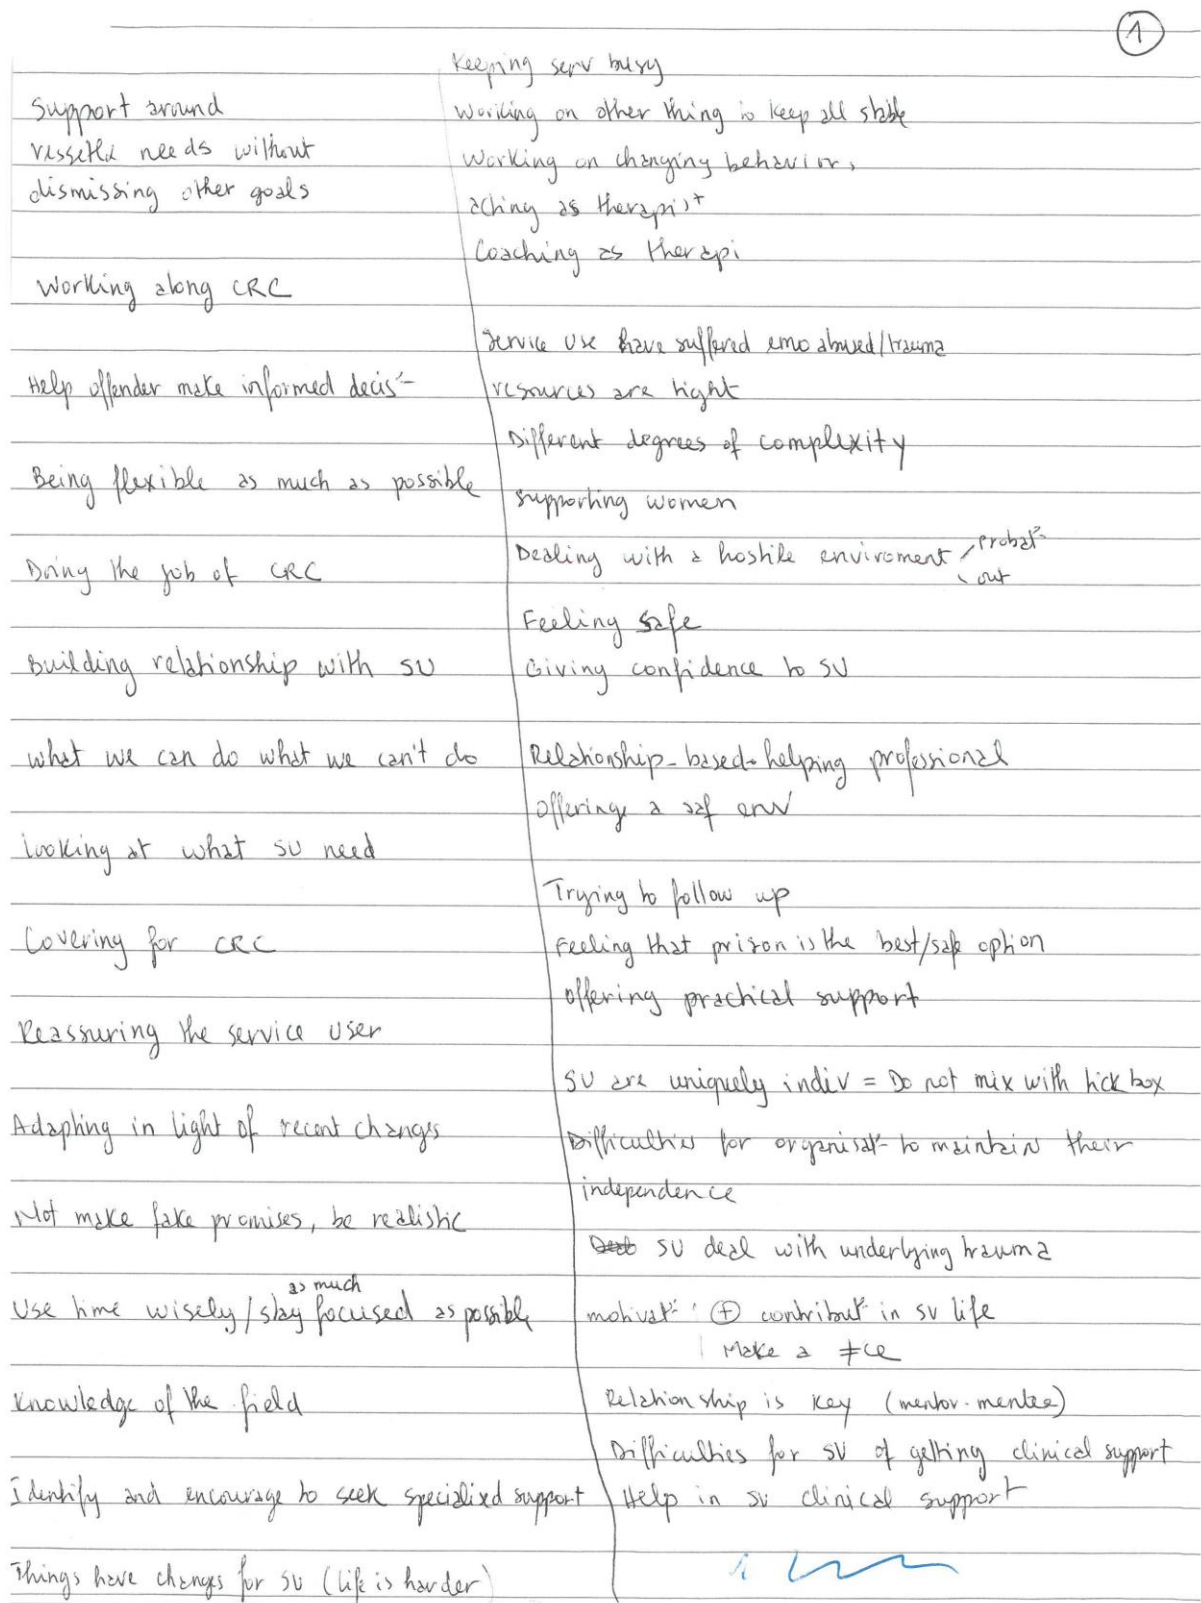 1
Support around
needs without
dismissing other goals
Working along CRC
Help offender make informed decis°
Being flexible as much as possible
Doing the job of CRC
Building relationship with SU
what we can do what we can't do
looking at what SU need
Covering for CRC
Reassuring the service user
Adapting in light of recent changes
Not make fake promises, be realistic
as much
Use time wisely/stay focused as possible
Knowledge of the field
Identify and encourage to seek specialized support
Things have changes for SU (life is harder)
Keeping serv busy
Working on other thing to keep all stable
Working on changing behaviors
acting as therapist
Coaching as therapi
Service Use have suffered emo abused/trauma
resources are tight
Different degrees of complexity
supporting women
Dealing with a hostile enviroment probat°
out
Feeling safe
Giving confidence to SU
Relationship-based-helping professional
offering a saf env
Trying to follow up
Feeling that prison is the best/safe option
offering practical support
SU are uniquely indiv = Do not mix with tick box
Difficulties for organisat° to maintain their
independence
SU deal with underlying trauma
motivat°: + contribut° in SU life
Make a ≠ce
Relationship is key (mentor-mentee)
Difficulties for SU of getting clinical support
Help in SU clinical support